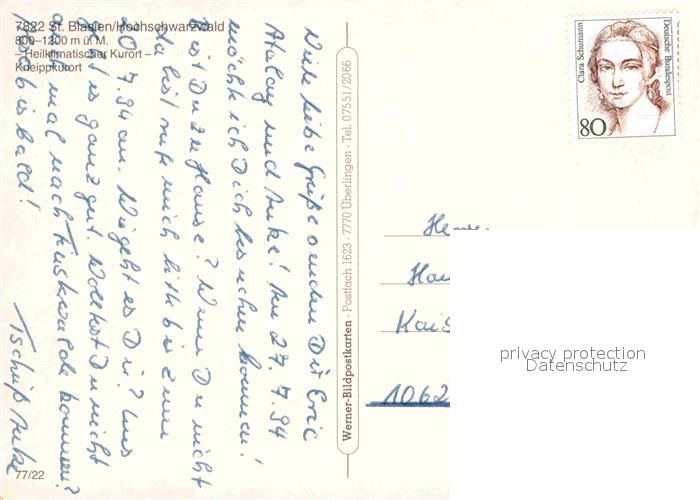 7822 St. Blasien/Hochschwarzwald
800–1200 m ü. M.
– Heilklimatischer Kurort –
Kneippkurort
Viele liebe Grüße senden Dir Eric
Atalay und Anke! Am 27.7.94
möchte ich Dich besuchen kommen!
Bist Du zu Hause? Wenn Du nicht
da bist rufe mich bitte bis zum
20.7.94 an. Wie geht es Dir? Uns
geht es ganz gut. Wolltest Du nicht
auch mal nach kommen?
Also bis bald!
Tschüß Anke
77/22
Werner-Bildpostkarten · Postfach 1623 · 7770 Überlingen · Tel. 07551/2066
Clara Schumann
Deutsche Bundespost
80
1062
privacy protection
Datenschutz